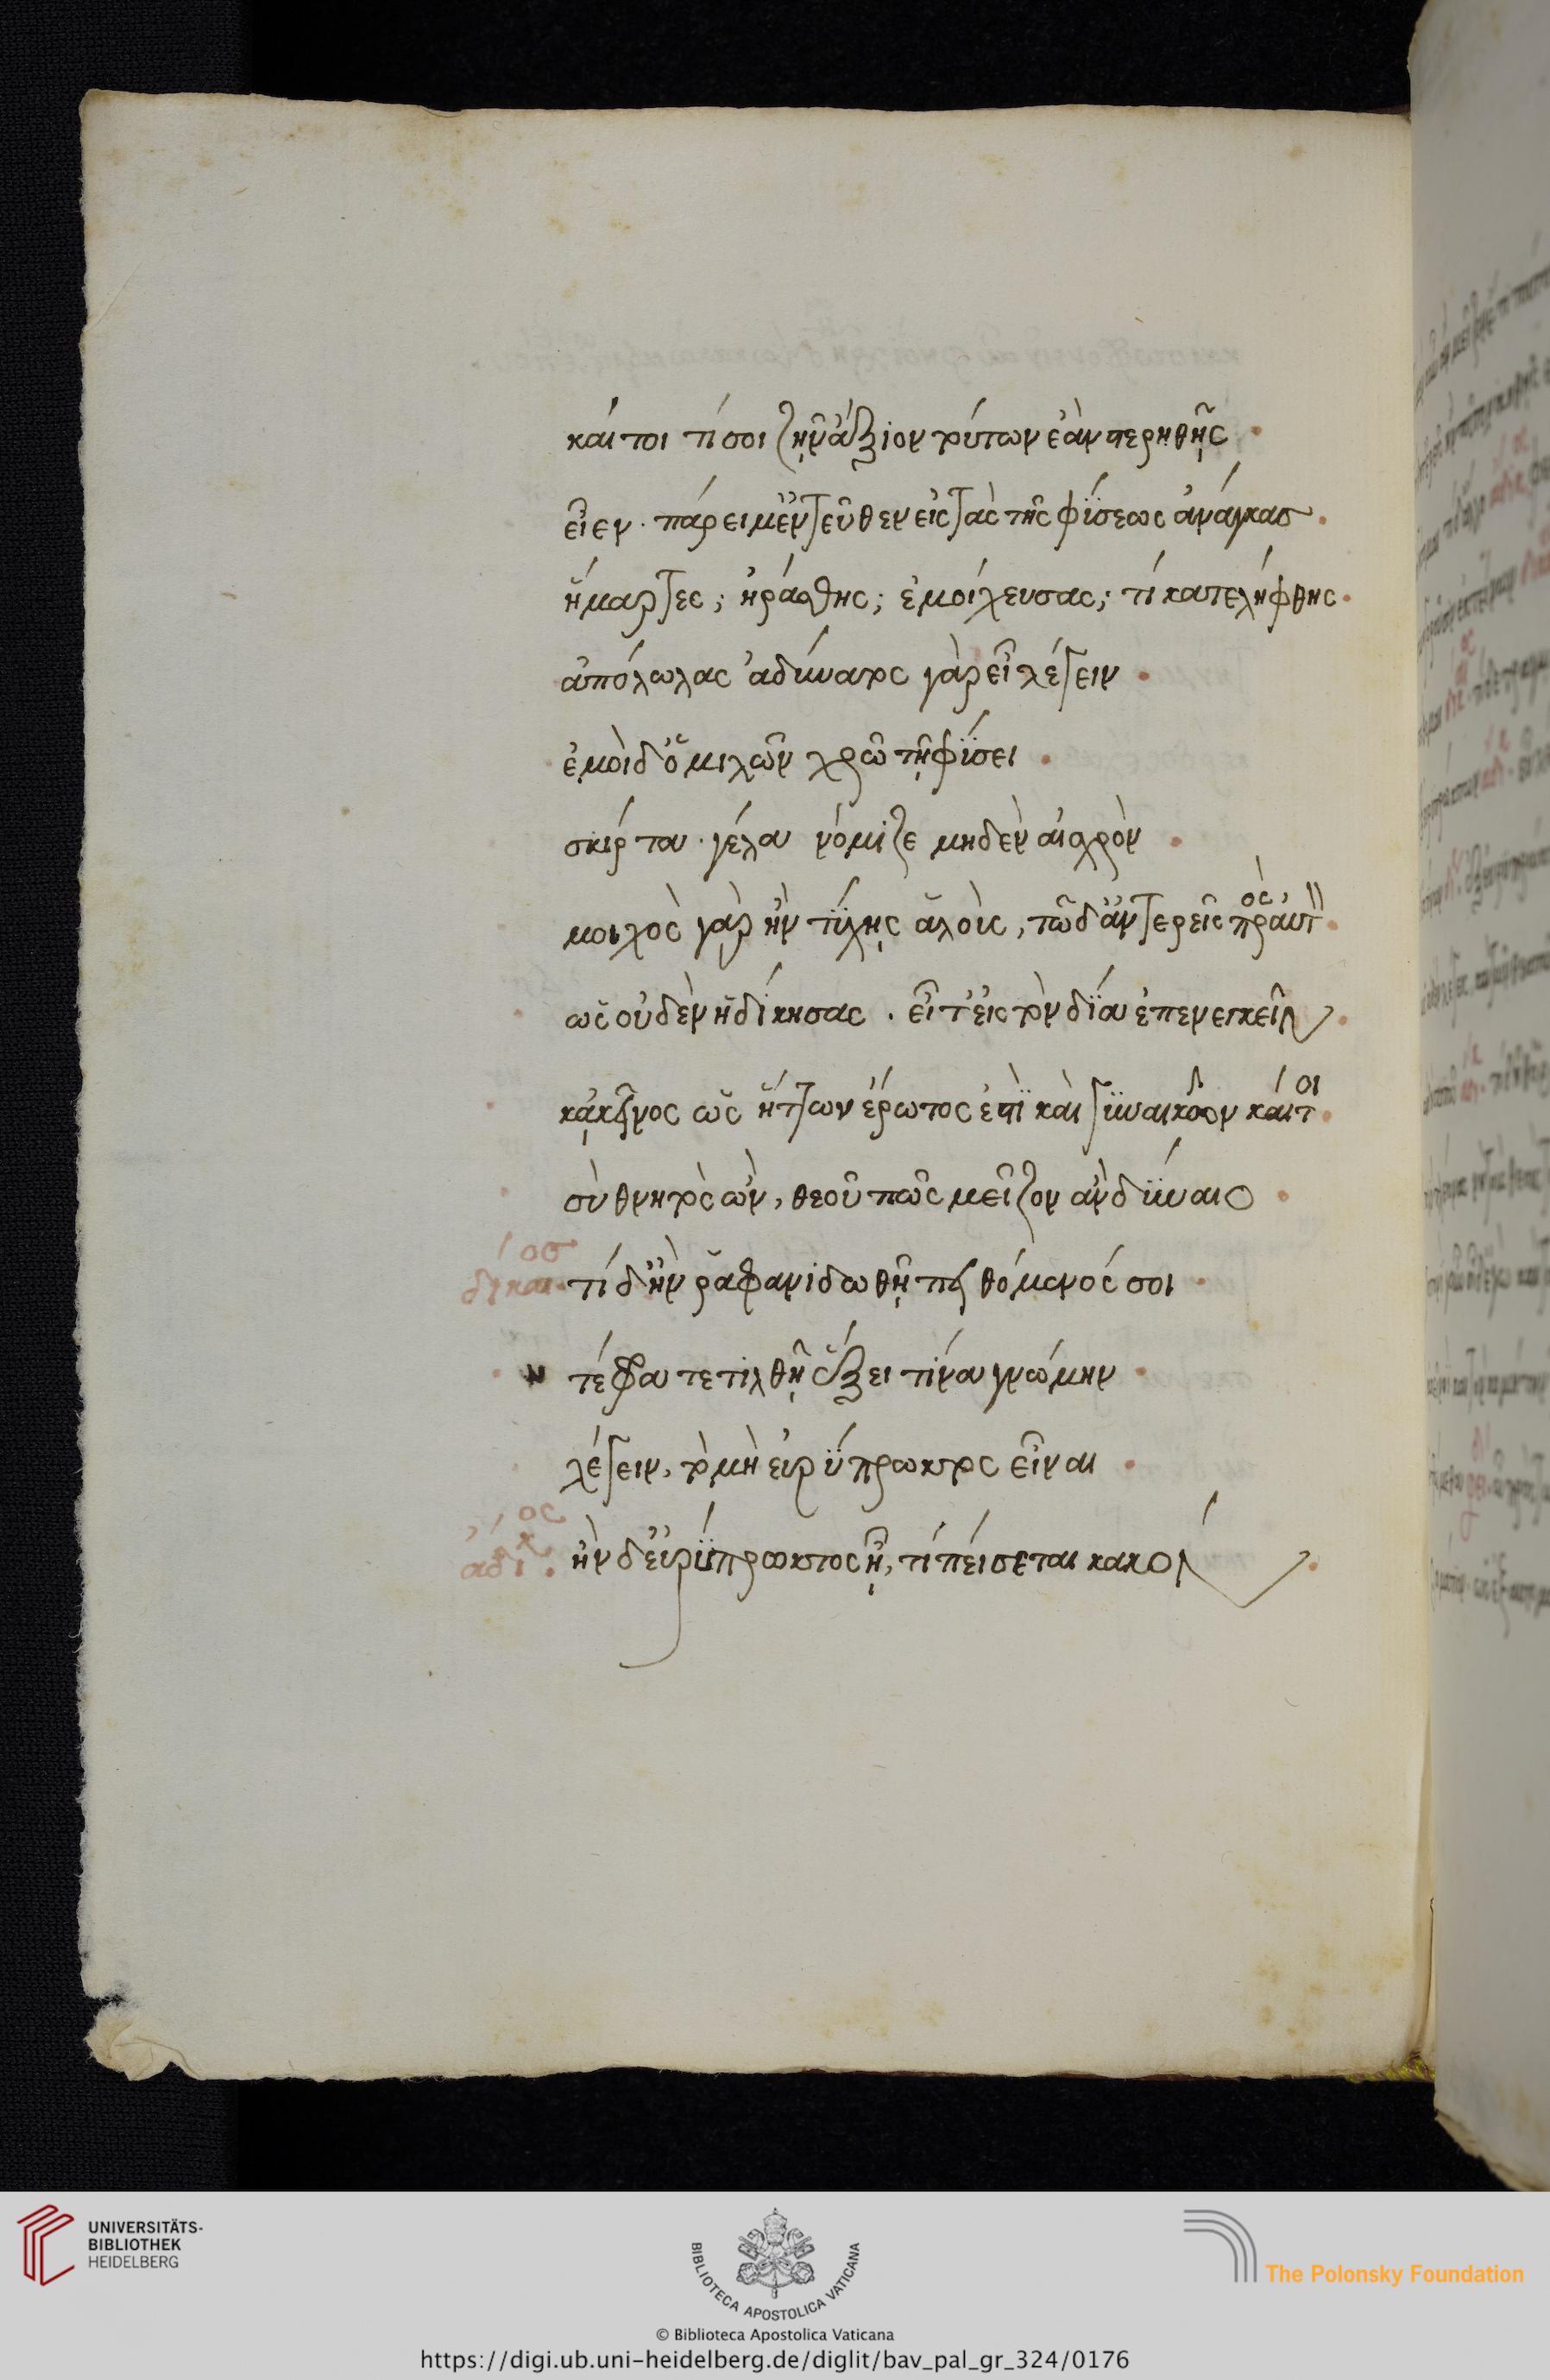 καίτοι τί σοι ζῆν ἄξιον τούτων ἐὰν στερηθῇς.
εἶεν. πάρειμ' ἐντεῦθεν εἰς τὰς τῆς φύσεως ἀνάγκας.
ἥμαρτες; ἠράσθης; ἐμοίχευσας; τί κατελήφθης.
ἀπόλωλας ἀδύνατος γὰρ εἶ λέγειν.
ἐμοὶ δ' ὁμιλῶν χρῶ τῇ φύσει.
σκίρτα. γέλα νόμιζε μηδὲν αἰσχρὸν.
μοιχὸς γὰρ ἢν τύχῃς ἁλοὺς, τῶδ' ἀντερεῖς πρὸς αὐτ.
ὡς οὐδὲν ἠδίκησας. εἶτ' εἰς τὸν δία ἐπενεγκεῖν.
κἀκεῖνος ὡς ἥττων ἔρωτος ἐστὶ καὶ γυναικῶν καίτοι.
σὺ θνητὸς ὢν, θεοῦ πῶς μεῖζον ἂν δύναιο.
δίκαιος. τί δ' ἢν ῥαφανιδωθῇ πειθόμενός σοι.
τέφρα τε τιλθῇ ἕξει τίνα γνώμην.
λέγειν, τὸ μὴ εὐρύπρωκτος εἶναι.
ἄδικος. ἢν δ' εὐρύπρωκτος ᾖ, τί πείσεται κακόν.
UNIVERSITÄTS-
BIBLIOTHEK
HEIDELBERG
BIBLIOTECA APOSTOLICA VATICANA
The Polonsky Foundation
© Biblioteca Apostolica Vaticana
https://digi.ub.uni-heidelberg.de/diglit/bav_pal_gr_324/0176